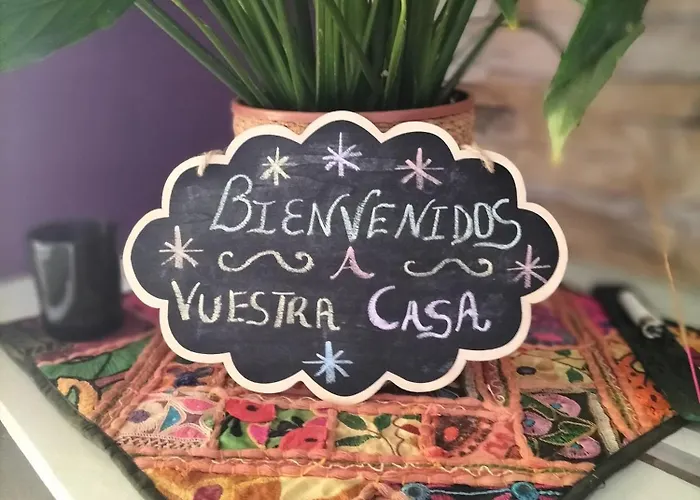 BIENVENIDOS
A
VUESTRA CASA